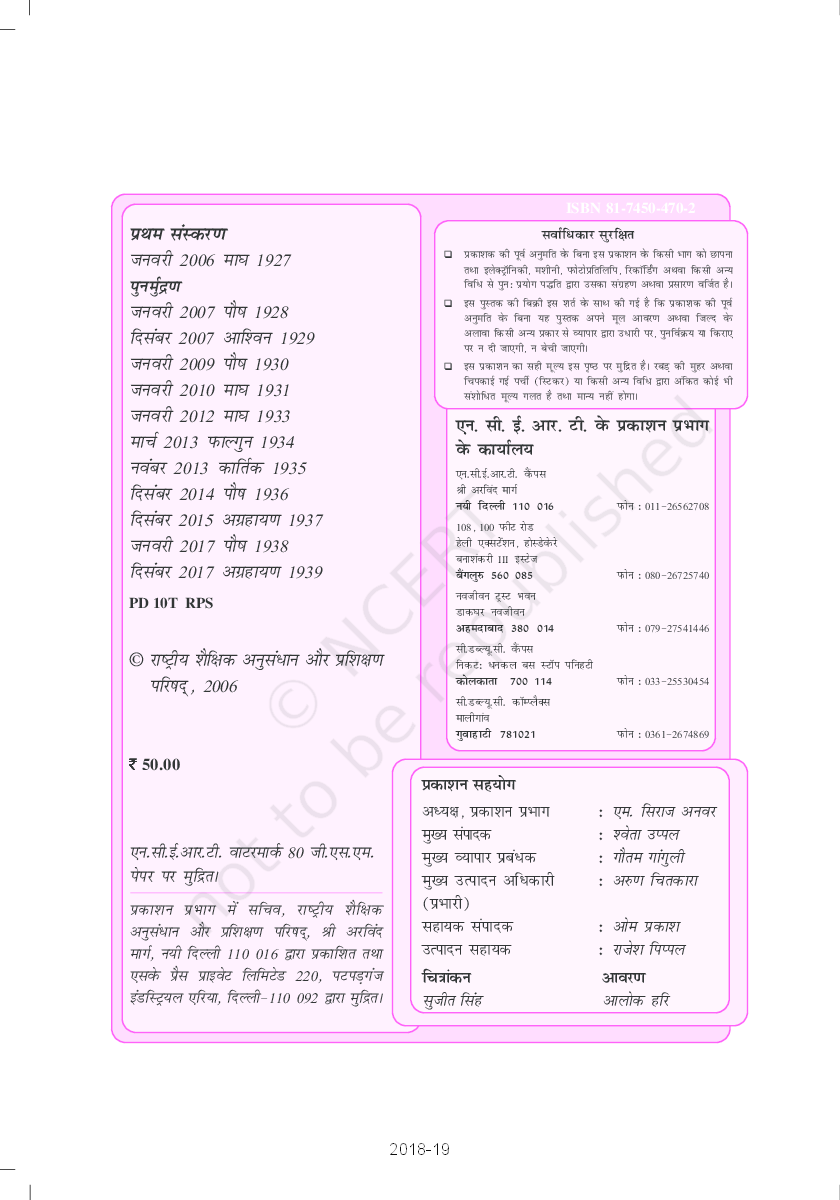 ISBN 81-7450-470-2
प्रथम संस्करण
जनवरी 2006 माघ 1927
पुनर्मुद्रण
जनवरी 2007 पौष 1928
दिसंबर 2007 आश्विन 1929
जनवरी 2009 पौष 1930
जनवरी 2010 माघ 1931
जनवरी 2012 माघ 1933
मार्च 2013 फाल्गुन 1934
नवंबर 2013 कार्तिक 1935
दिसंबर 2014 पौष 1936
दिसंबर 2015 अग्रहायण 1937
जनवरी 2017 पौष 1938
दिसंबर 2017 अग्रहायण 1939
PD 10T RPS
© राष्ट्रीय शैक्षिक अनुसंधान और प्रशिक्षण
परिषद्, 2006
₹ 50.00
एन.सी.ई.आर.टी. वाटरमार्क 80 जी.एस.एम.
पेपर पर मुद्रित।
प्रकाशन प्रभाग में सचिव, राष्ट्रीय शैक्षिक
अनुसंधान और प्रशिक्षण परिषद्, श्री अरविंद
मार्ग, नयी दिल्ली 110 016 द्वारा प्रकाशित तथा
एसके प्रैस प्राइवेट लिमिटेड 220, पटपड़गंज
इंडस्ट्रियल एरिया, दिल्ली-110 092 द्वारा मुद्रित।
सर्वाधिकार सुरक्षित
❑ प्रकाशक की पूर्व अनुमति के बिना इस प्रकाशन के किसी भाग को छापना
तथा इलेक्ट्रॉनिकी, मशीनी, फोटोप्रतिलिपि, रिकॉर्डिंग अथवा किसी अन्य
विधि से पुन: प्रयोग पद्धति द्वारा उसका संग्रहण अथवा प्रसारण वर्जित है।
❑ इस पुस्तक की बिक्री इस शर्त के साथ की गई है कि प्रकाशक की पूर्व
अनुमति के बिना यह पुस्तक अपने मूल आवरण अथवा जिल्द के
अलावा किसी अन्य प्रकार से व्यापार द्वारा उधारी पर, पुनर्विक्रय या किराए
पर न दी जाएगी, न बेची जाएगी।
❑ इस प्रकाशन का सही मूल्य इस पृष्ठ पर मुद्रित है। रबड़ की मुहर अथवा
चिपकाई गई पर्ची (स्टिकर) या किसी अन्य विधि द्वारा अंकित कोई भी
संशोधित मूल्य गलत है तथा मान्य नहीं होगा।
एन. सी. ई. आर. टी. के प्रकाशन प्रभाग
के कार्यालय
एन.सी.ई.आर.टी. कैंपस
श्री अरविंद मार्ग
नयी दिल्ली 110 016 फोन : 011-26562708
108, 100 फीट रोड
हेली एक्सटेंशन, होस्डेकेरे
बनाशंकरी III इस्टेज
बैंगलुरु 560 085 फोन : 080-26725740
नवजीवन ट्रस्ट भवन
डाकघर नवजीवन
अहमदाबाद 380 014 फोन : 079-27541446
सी.डब्ल्यू.सी. कैंपस
निकट: धनकल बस स्टॉप पनिहटी
कोलकाता 700 114 फोन : 033-25530454
सी.डब्ल्यू.सी. कॉम्प्लैक्स
मालीगांव
गुवाहाटी 781021 फोन : 0361-2674869
प्रकाशन सहयोग
अध्यक्ष, प्रकाशन प्रभाग : एम. सिराज अनवर
मुख्य संपादक : श्वेता उप्पल
मुख्य व्यापार प्रबंधक : गौतम गांगुली
मुख्य उत्पादन अधिकारी : अरुण चितकारा
(प्रभारी)
सहायक संपादक : ओम प्रकाश
उत्पादन सहायक : राजेश पिप्पल
चित्रांकन आवरण
सुजीत सिंह आलोक हरि
© NCERT
not to be republished
2018-19